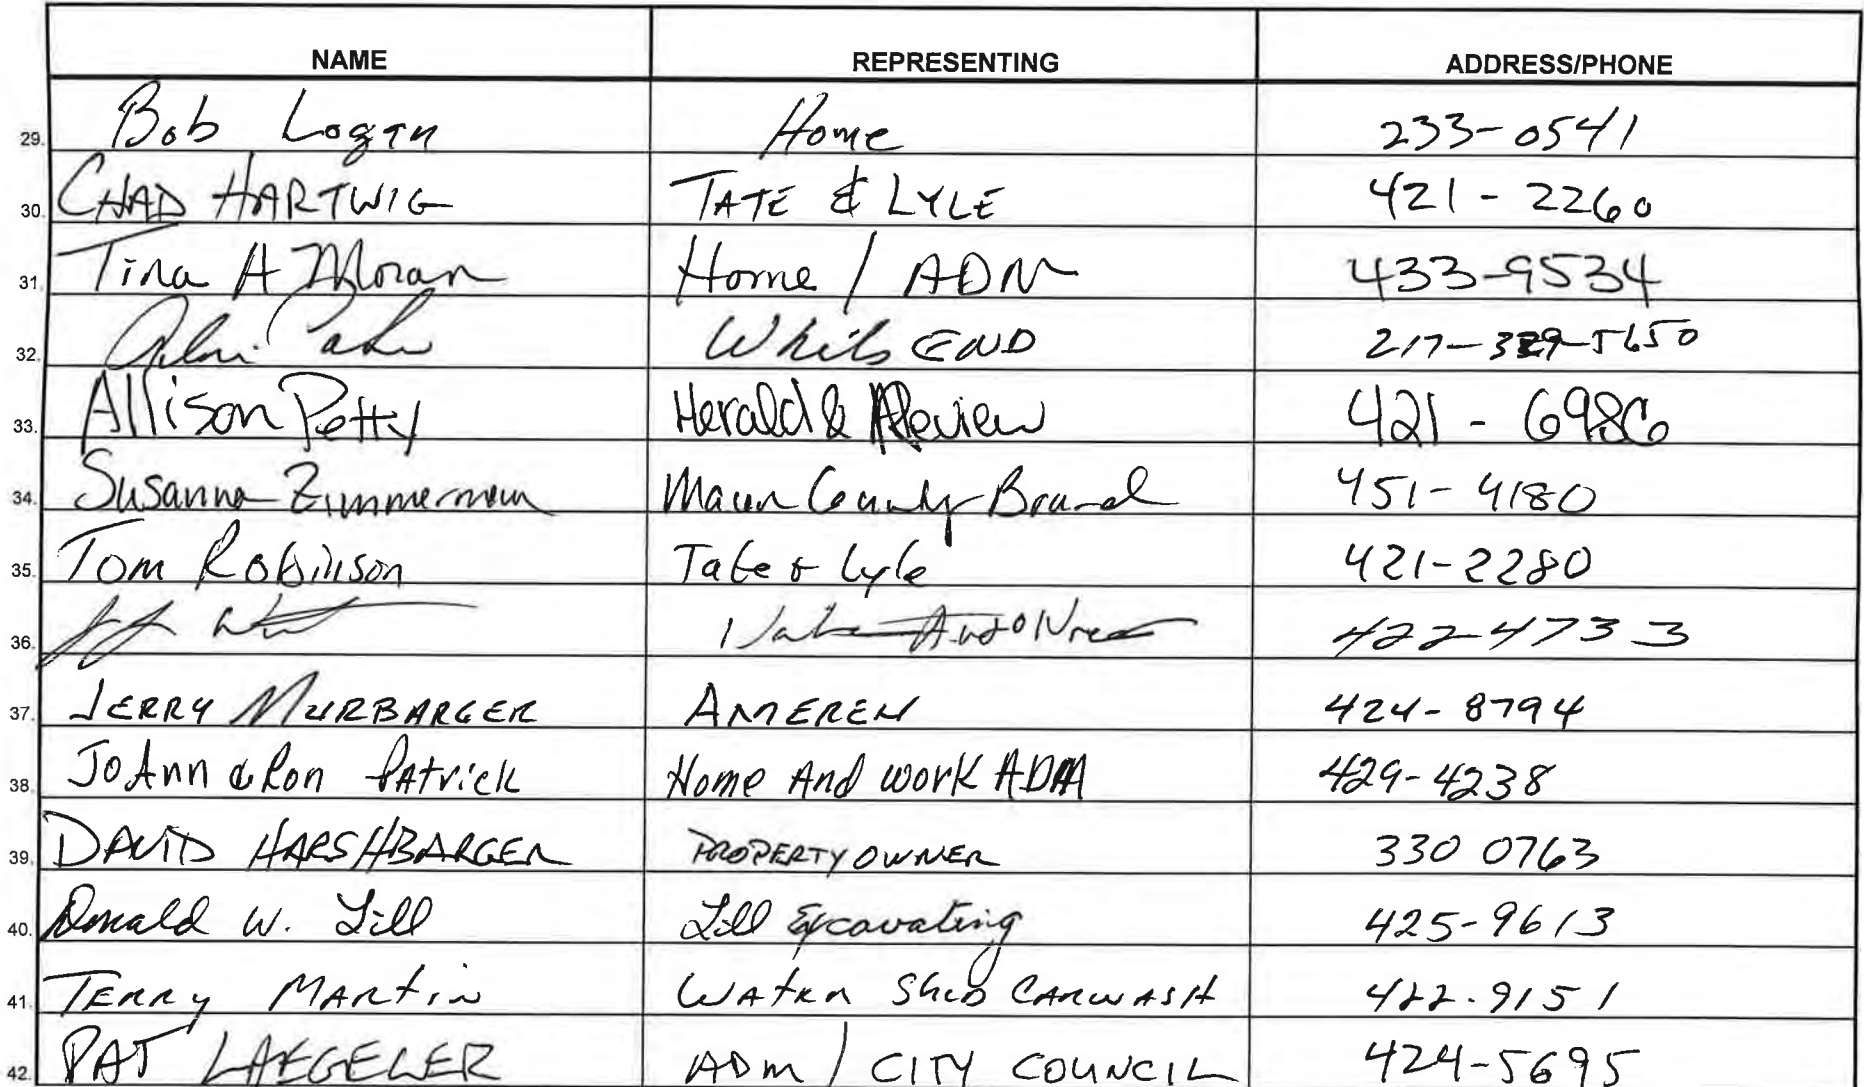 NAME REPRESENTING ADDRESS/PHONE
29. Bob Logan Home 233-0541
30. CHAD HARTWIG TATE & LYLE 421-2260
31. Tina A Moran Home / ADM 433-9534
32. END 217-329-5650
33. Allison Petty Herald & Review 421-6986
34. Susanna Zimmerman Macon County Board 451-4180
35. Tom Robinson Tate & Lyle 421-2280
36. 422-4733
37. JERRY MURBARGER AMEREN 424-8794
38. JoAnn & Ron Patrick Home And work ADM 429-4238
39. DAVID HARSHBARGER PROPERTY OWNER 330 0763
40. Donald W. Lill Lill Excavating 425-9613
41. TERRY MARTIN WATER SHED CARWASH 422.9151
42. PAT LAEGELER ADM / CITY COUNCIL 424-5695